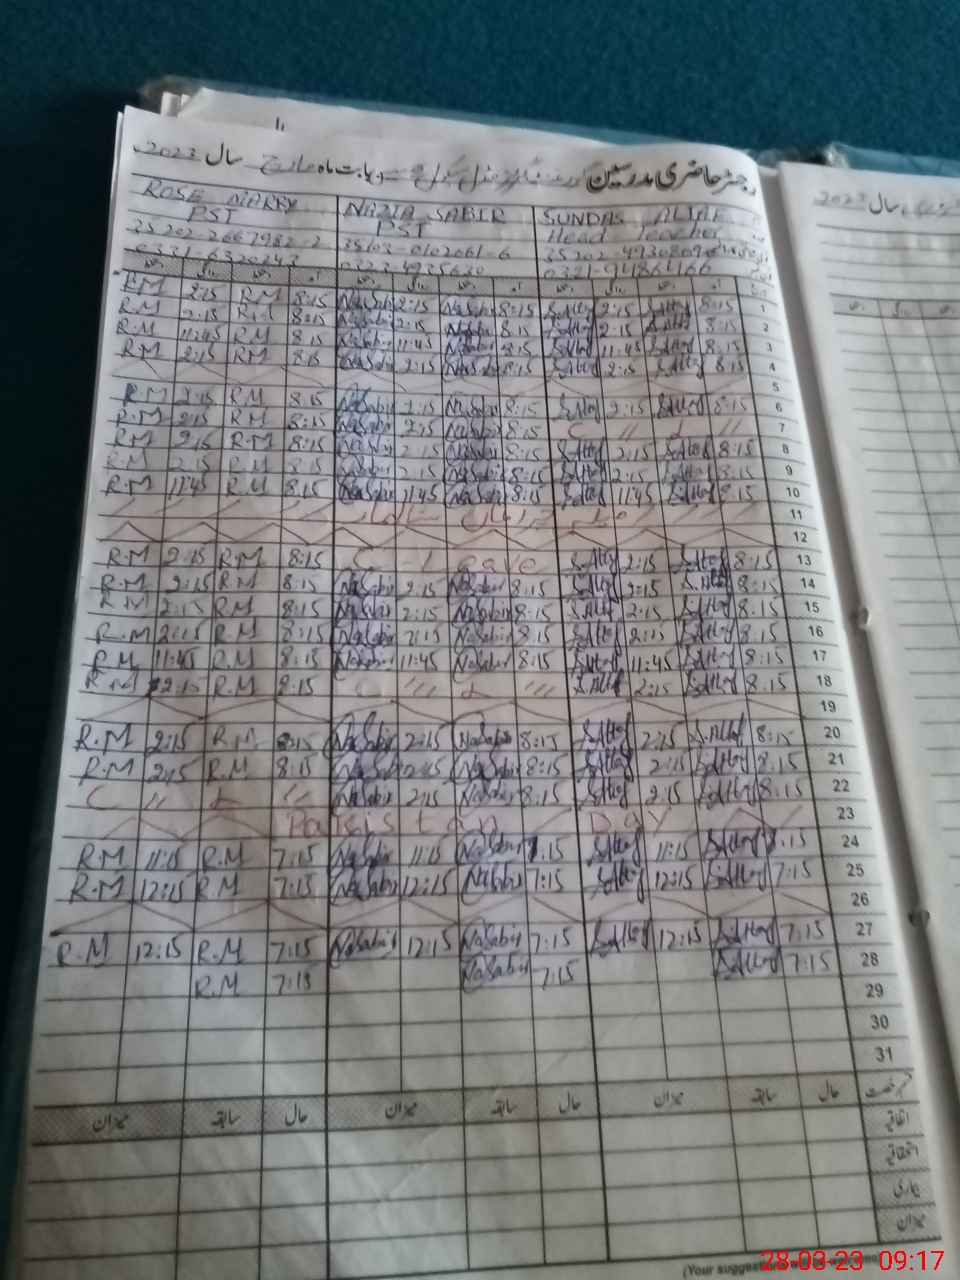 رجسٹر حاضری مدرسین بابت ماہ مارچ سال 2023ء
ROSE MARRY NAZIA SABIR SUNDAS ALTAF
PST PST Head Teacher
35202-2667982-2 35103-0102061-6
0331-6320243 0323-4935630 0321-9486466
R.M 2:15 R.M 8:15 NaSabir 2:15 NaSabir 8:15 S.Altaf 2:15 S.Altaf 8:15 1
R.M 2:15 R.M 8:15 NaSabir 2:15 NaSabir 8:15 S.Altaf 2:15 S.Altaf 8:15 2
R.M 11:45 R.M 8:15 NaSabir 11:45 NaSabir 8:15 S.Altaf 11:45 S.Altaf 8:15 3
R.M 2:15 R.M 8:15 NaSabir 2:15 NaSabir 8:15 S.Altaf 2:15 S.Altaf 8:15 4
5
R.M 2:15 R.M 8:15 NaSabir 2:15 NaSabir 8:15 S.Altaf 2:15 S.Altaf 8:15 6
R.M 2:15 R.M 8:15 NaSabir 2:15 NaSabir 8:15 C // L // 7
R.M 2:15 R.M 8:15 NaSabir 2:15 NaSabir 8:15 S.Altaf 2:15 S.Altaf 8:15 8
R.M 2:15 R.M 8:15 NaSabir 2:15 NaSabir 8:15 S.Altaf 2:15 S.Altaf 8:15 9
R.M 11:45 R.M 8:15 NaSabir 11:45 NaSabir 8:15 S.Altaf 11:45 S.Altaf 8:15 10
میلہ چراغاں شالامار 11
12
R.M 2:15 R.M 8:15 C - Leave S.Altaf 2:15 S.Altaf 8:15 13
R.M 2:15 R.M 8:15 NaSabir 2:15 NaSabir 8:15 S.Altaf 2:15 S.Altaf 8:15 14
R.M 2:15 R.M 8:15 NaSabir 2:15 NaSabir 8:15 S.Altaf 2:15 S.Altaf 8:15 15
R.M 2:15 R.M 8:15 NaSabir 2:15 NaSabir 8:15 S.Altaf 2:15 S.Altaf 8:15 16
R.M 11:45 R.M 8:15 NaSabir 11:45 NaSabir 8:15 S.Altaf 11:45 S.Altaf 8:15 17
R.M 2:15 R.M 8:15 C /// L /// S.Altaf 2:15 S.Altaf 8:15 18
19
R.M 2:15 R.M 8:15 NaSabir 2:15 NaSabir 8:15 S.Altaf 2:15 S.Altaf 8:15 20
R.M 2:15 R.M 8:15 NaSabir 2:15 NaSabir 8:15 S.Altaf 2:15 S.Altaf 8:15 21
C // L // NaSabir 2:15 NaSabir 8:15 S.Altaf 2:15 S.Altaf 8:15 22
Pakistan Day 23
R.M 11:15 R.M 7:15 NaSabir 11:15 NaSabir 7:15 S.Altaf 11:15 S.Altaf 7:15 24
R.M 12:15 R.M 7:15 NaSabir 12:15 NaSabir 7:15 S.Altaf 12:15 S.Altaf 7:15 25
26
R.M 12:15 R.M 7:15 NaSabir 12:15 NaSabir 7:15 S.Altaf 12:15 S.Altaf 7:15 27
R.M 7:15 NaSabir 7:15 S.Altaf 7:15 28
29
30
31
میزان سابقہ حال میزان سابقہ حال میزان سابقہ حال
اتفاقیہ
استحقاقیہ
بیماری
میزان
(Your sugges
28-03-23 09:17
2023ء سال